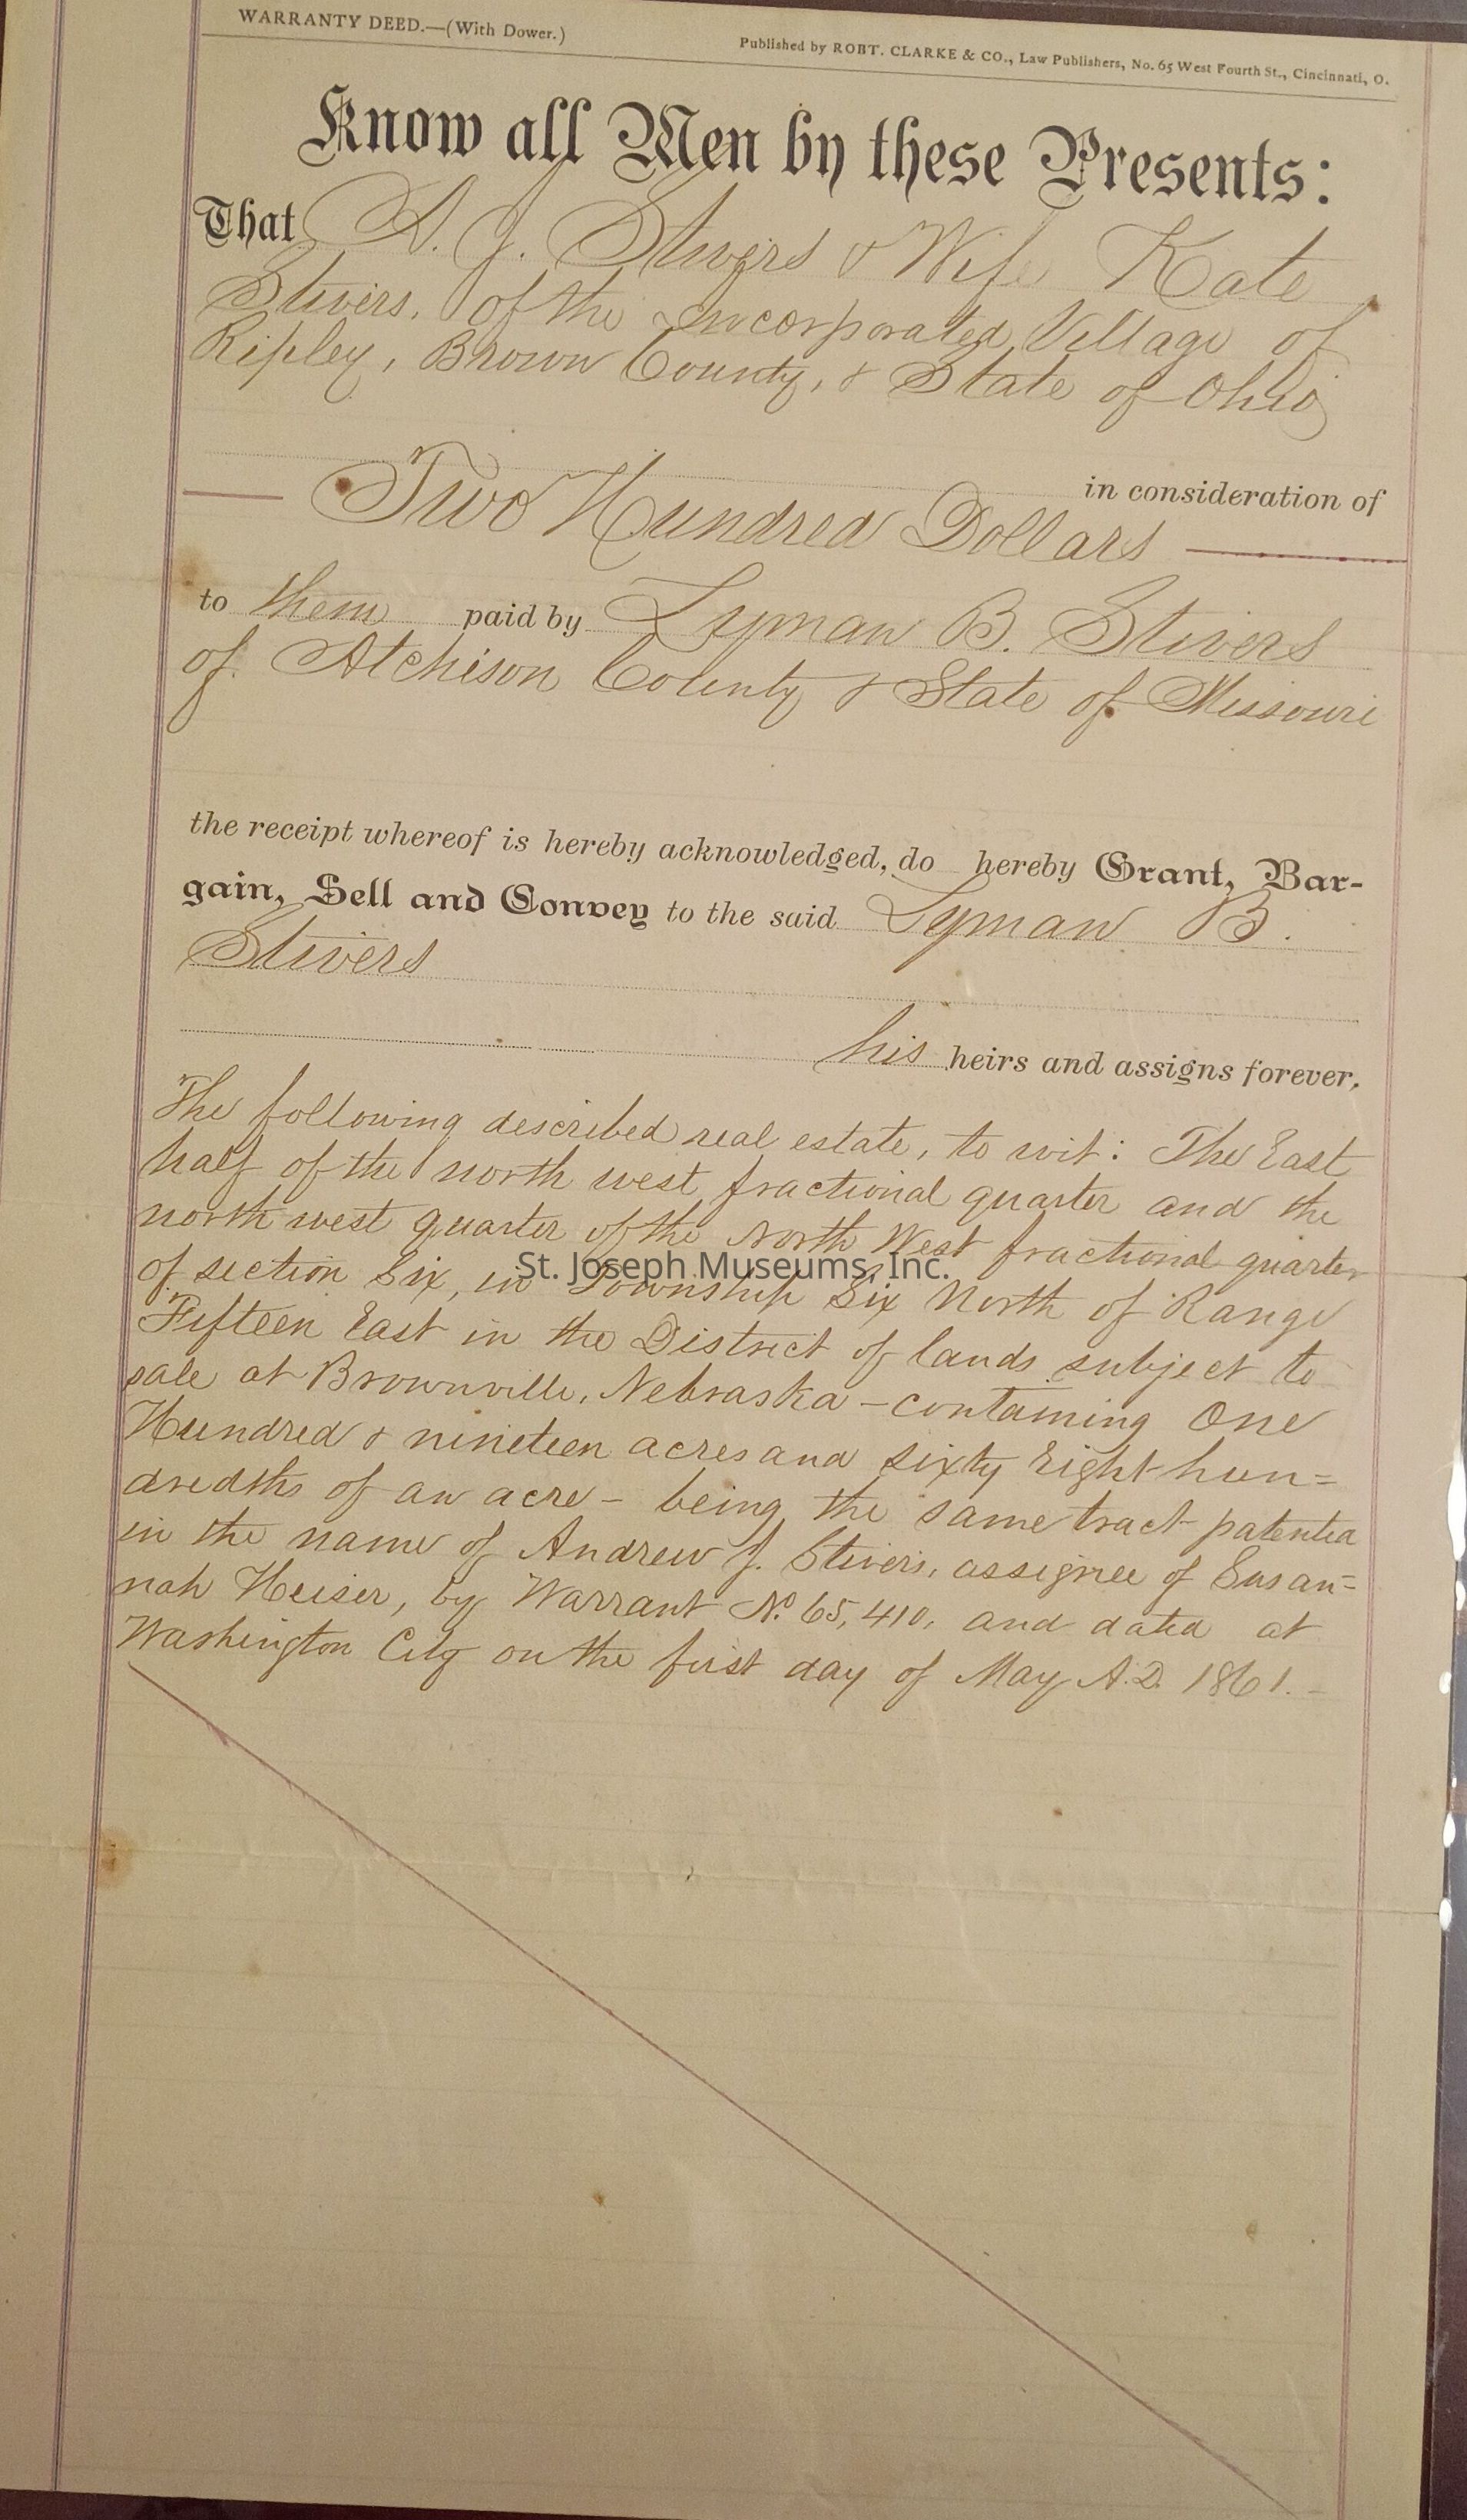 WARRANTY DEED.—(With Dower.)
Published by ROBT. CLARKE & CO., Law Publishers, No. 65 West Fourth St., Cincinnati, O.
Know all Men by these Presents:
That A. J. Stivers & Wife Kate
Stivers, of the incorporated Village of
Ripley, Brown County, & State of Ohio
in consideration of
Two Hundred Dollars
to them paid by Lyman B. Stivers
of Atchison County & State of Missouri
the receipt whereof is hereby acknowledged, do hereby Grant, Bar-
gain, Sell and Convey to the said Lyman B.
Stivers
his heirs and assigns forever,
The following described real estate, to wit: The East
half of the north west fractional quarter and the
north west quarter of the North West fractional quarter
of section Six, in Township Six North of Range
St. Joseph Museums, Inc.
Fifteen East in the District of lands subject to
sale at Brownville, Nebraska - containing One
Hundred & nineteen acres and sixty Eight hun=
dredths of an acre - being the same tract patented
in the name of Andrew J. Stivers, assignee of Susan=
nah Heiser, by Warrant No. 65,410, and dated at
Washington City on the first day of May A.D. 1861. -